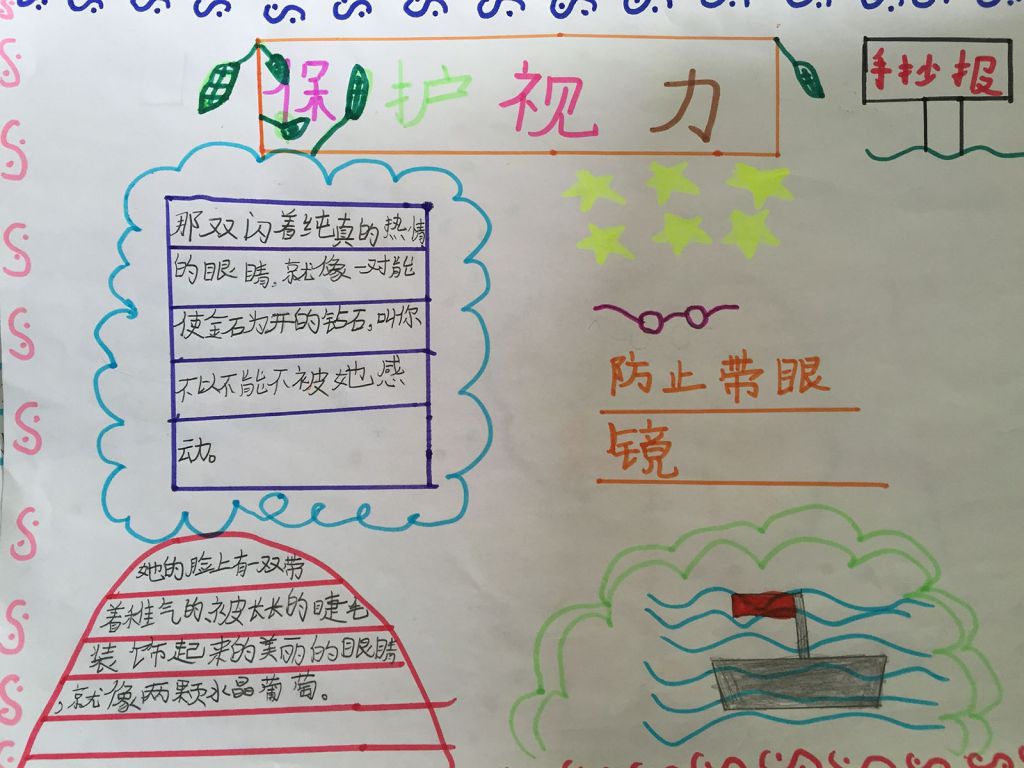 保护视力
手抄报
那双闪着纯真的热情
的眼睛,就像一对能
使金石为开的钻石,叫你
不以不能不被她感
动。
防止带眼
镜
她的脸上有一双带
着稚气的、被长长的睫毛
装饰起来的美丽的眼睛
,就像两颗水晶葡萄。